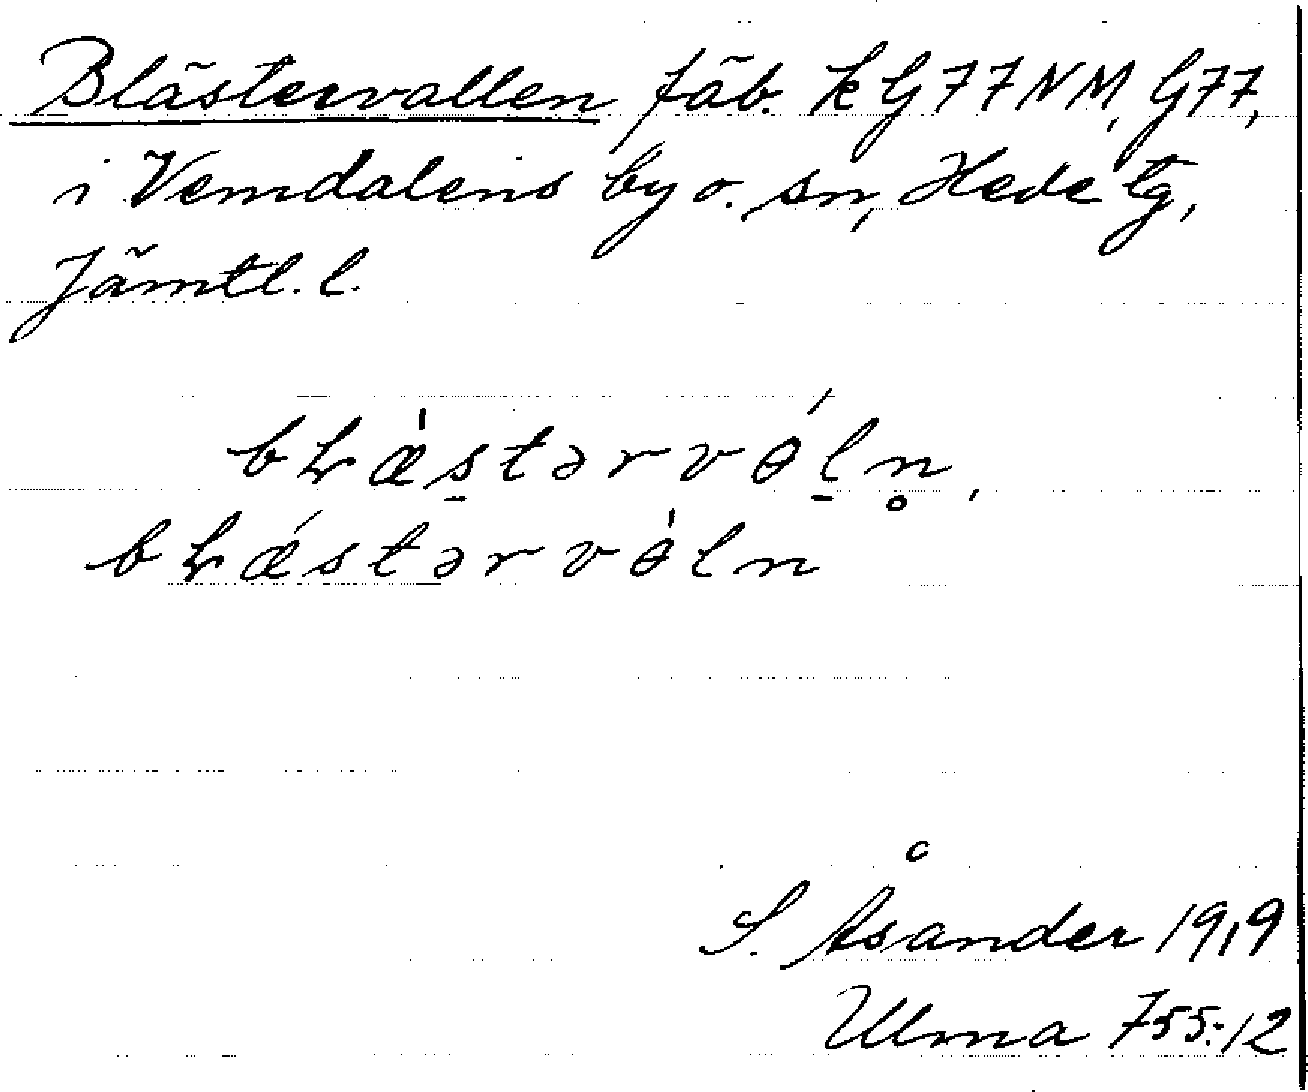 Blästervallen fäb. k G77NM, G77,
i Vemdalens by o. sn, Hede tg,
Jämtl. l.
bʟæ̀s̲tərvɵ́l̲n̥,
bʟǽstərvɵ̀ln
S. Åsander 1919
Ulma 755:12